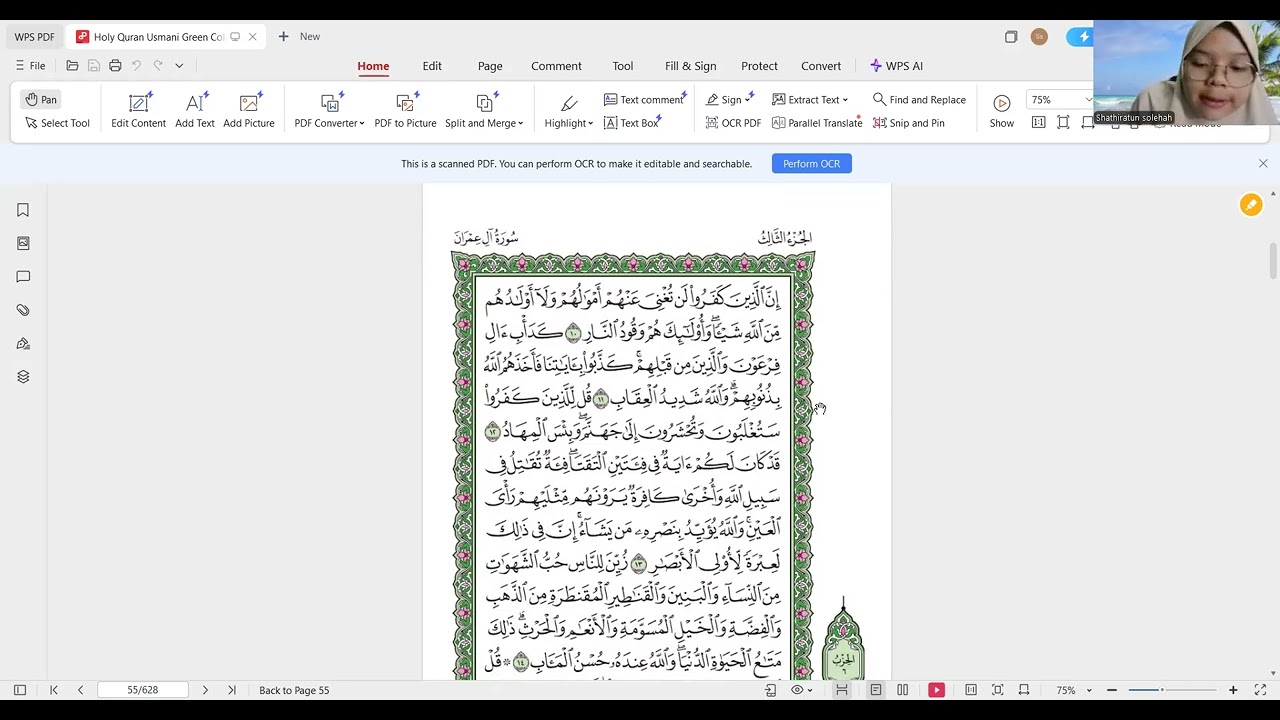 WPS PDF
Holy Quran Usmani Green Co
New
Ss
File
Home
Edit
Page
Comment
Tool
Fill & Sign
Protect
Convert
WPS AI
Pan
Select Tool
Edit Content
Add Text
Add Picture
PDF Converter
PDF to Picture
Split and Merge
Highlight
Text comment
Text Box
Sign
OCR PDF
Extract Text
Parallel Translate
Find and Replace
Snip and Pin
Show
75%
1:1
Read Mode
Shathiratun solehah
This is a scanned PDF. You can perform OCR to make it editable and searchable.
Perform OCR
الجُزْءُ الثَّالِثُ
سُورَةُ آلِ عِمْرَانَ
إِنَّ ٱلَّذِينَ كَفَرُوا۟ لَن تُغْنِىَ عَنْهُمْ أَمْوَٰلُهُمْ وَلَآ أَوْلَـٰدُهُم
مِّنَ ٱللَّهِ شَيْـًٔا ۖ وَأُو۟لَـٰٓئِكَ هُمْ وَقُودُ ٱلنَّارِ ١٠ كَدَأْبِ ءَالِ
فِرْعَوْنَ وَٱلَّذِينَ مِن قَبْلِهِمْ ۚ كَذَّبُوا۟ بِـَٔايَـٰتِنَا فَأَخَذَهُمُ ٱللَّهُ
بِذُنُوبِهِمْ ۗ وَٱللَّهُ شَدِيدُ ٱلْعِقَابِ ١١ قُل لِّلَّذِينَ كَفَرُوا۟
سَتُغْلَبُونَ وَتُحْشَرُونَ إِلَىٰ جَهَنَّمَ ۚ وَبِئْسَ ٱلْمِهَادُ ١٢
قَدْ كَانَ لَكُمْ ءَايَةٌ فِى فِئَتَيْنِ ٱلْتَقَتَا ۖ فِئَةٌ تُقَـٰتِلُ فِى
سَبِيلِ ٱللَّهِ وَأُخْرَىٰ كَافِرَةٌ يَرَوْنَهُم مِّثْلَيْهِمْ رَأْىَ
ٱلْعَيْنِ ۚ وَٱللَّهُ يُؤَيِّدُ بِنَصْرِهِۦ مَن يَشَآءُ ۗ إِنَّ فِى ذَٰلِكَ
لَعِبْرَةً لِّأُو۟لِى ٱلْأَبْصَـٰرِ ١٣ زُيِّنَ لِلنَّاسِ حُبُّ ٱلشَّهَوَٰتِ
مِنَ ٱلنِّسَآءِ وَٱلْبَنِينَ وَٱلْقَنَـٰطِيرِ ٱلْمُقَنطَرَةِ مِنَ ٱلذَّهَبِ
وَٱلْفِضَّةِ وَٱلْخَيْلِ ٱلْمُسَوَّمَةِ وَٱلْأَنْعَـٰمِ وَٱلْحَرْثِ ۗ ذَٰلِكَ
مَتَـٰعُ ٱلْحَيَوٰةِ ٱلدُّنْيَا ۖ وَٱللَّهُ عِندَهُۥ حُسْنُ ٱلْمَـَٔابِ ١٤ ۞ قُلْ
الحِزْبُ
٦
55/628
Back to Page 55
75%